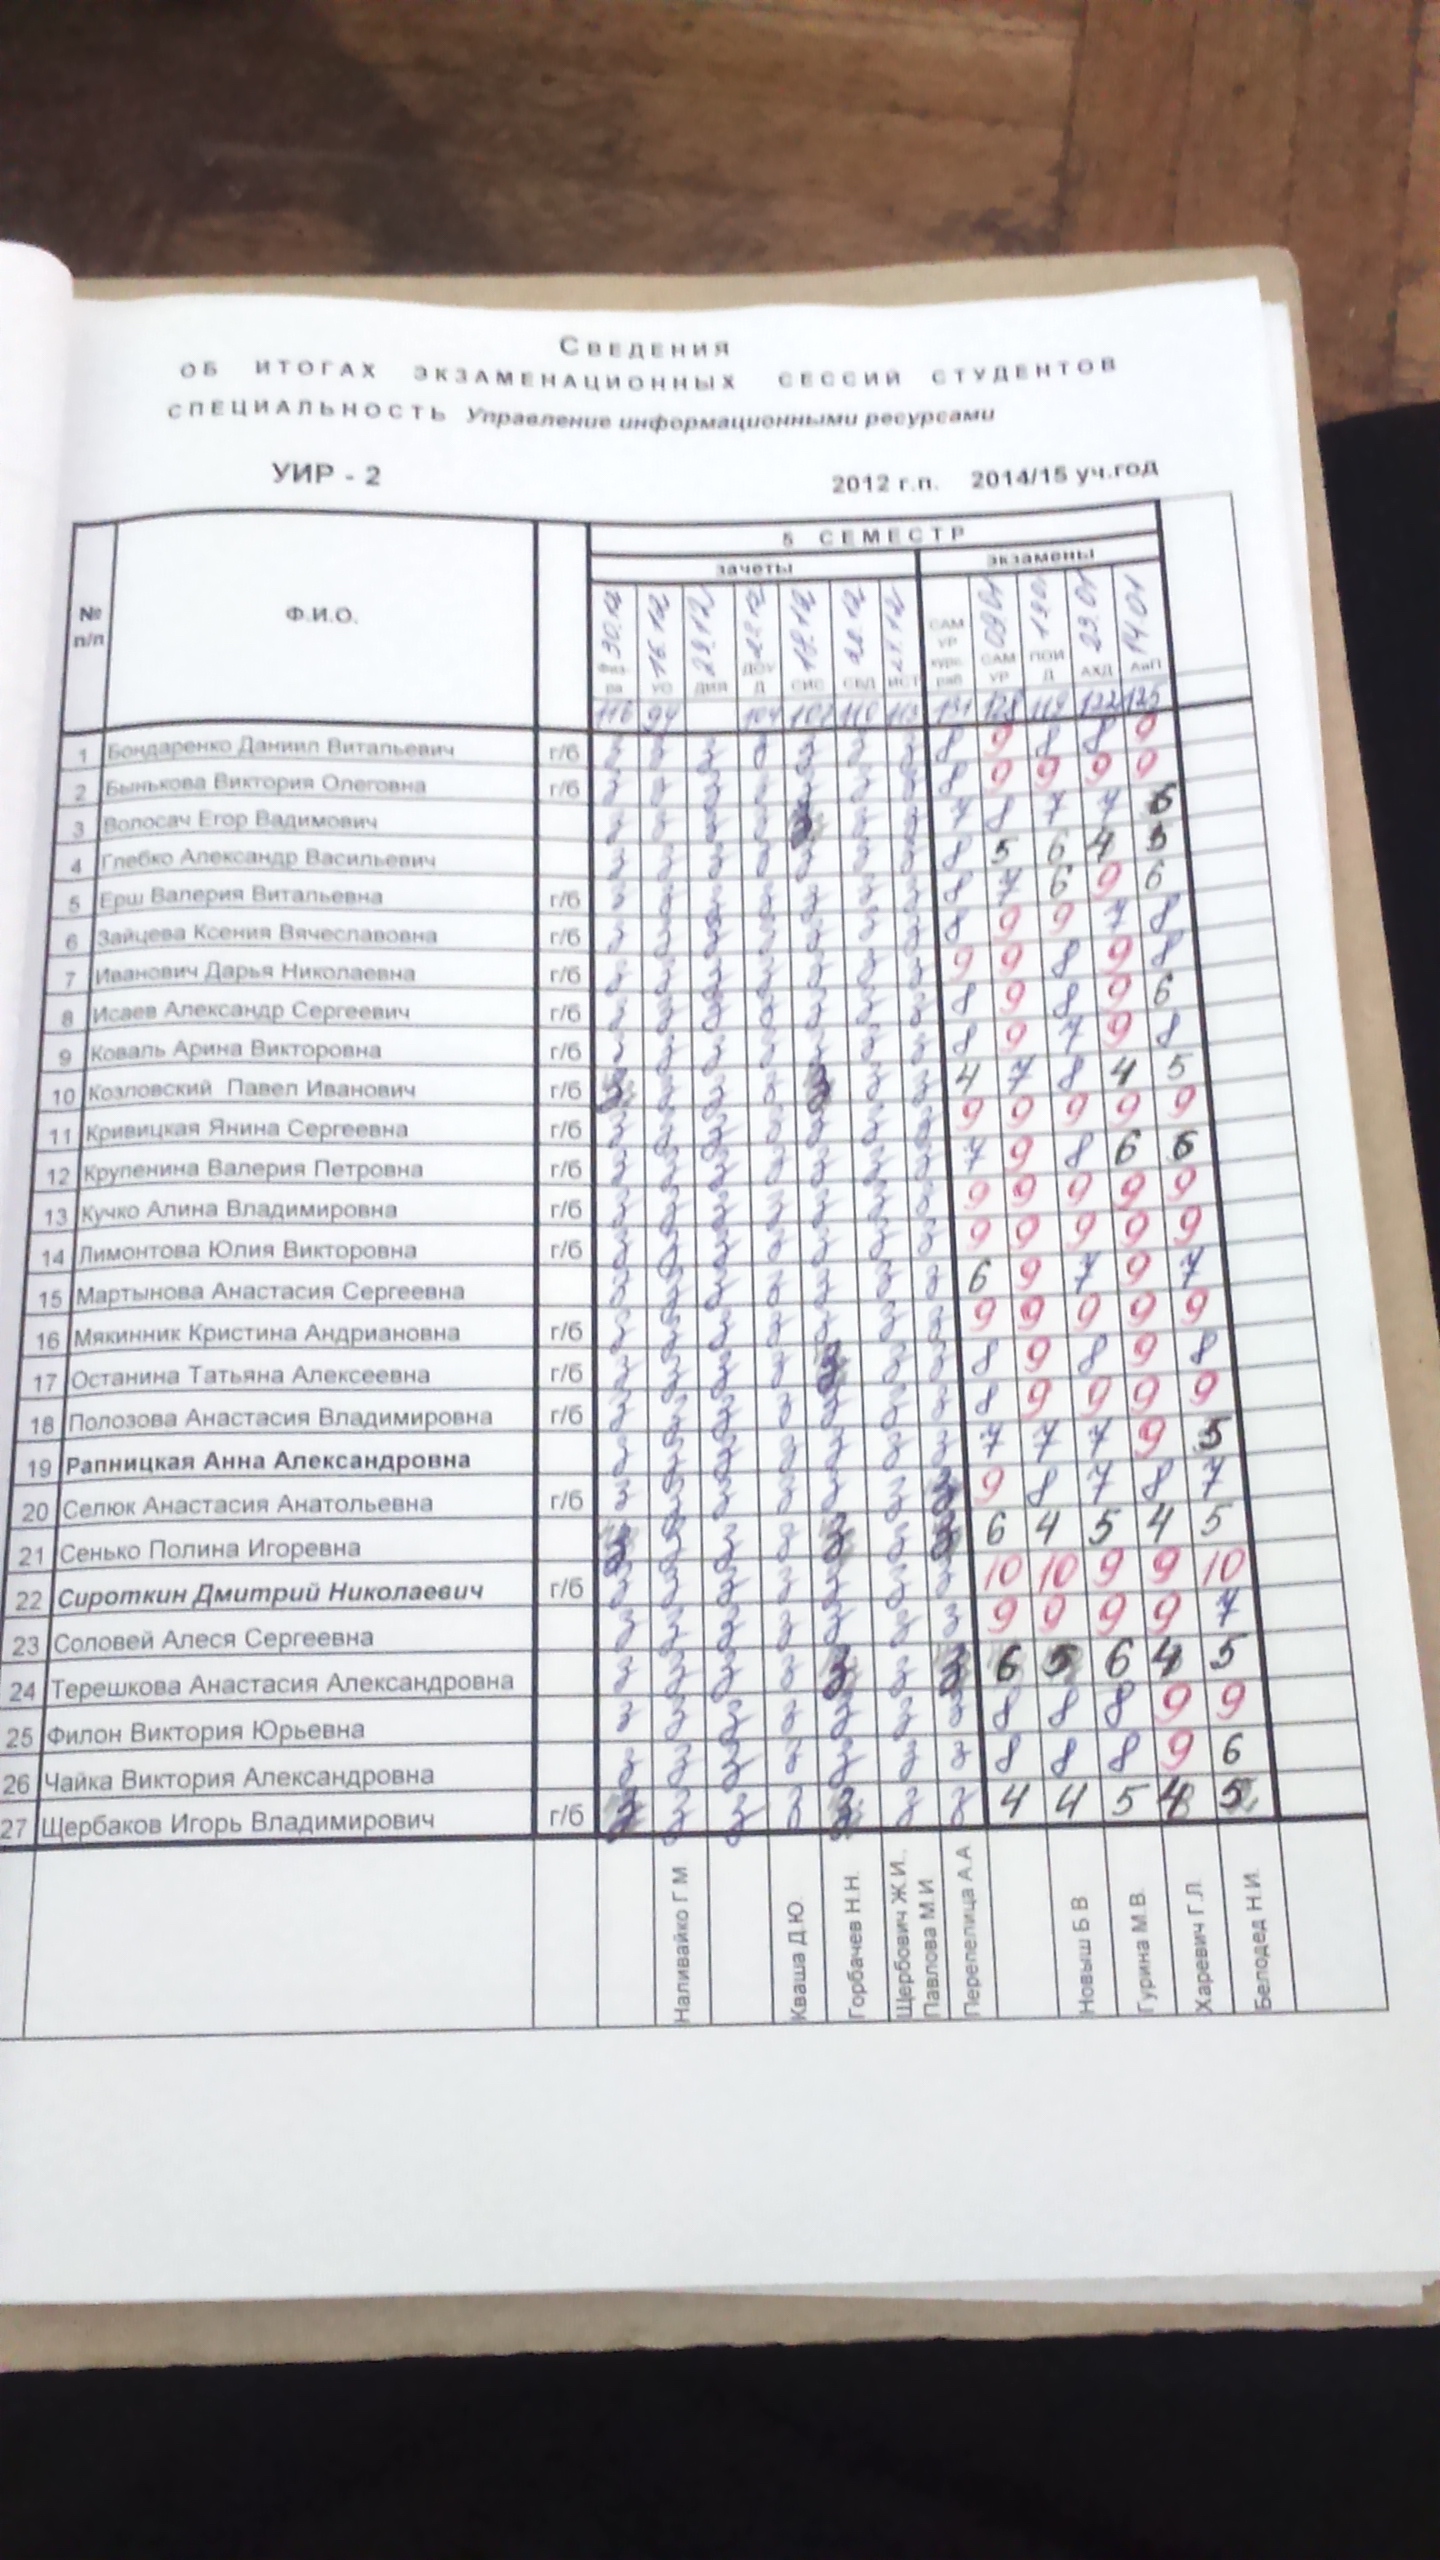 СВЕДЕНИЯ
ОБ ИТОГАХ ЭКЗАМЕНАЦИОННЫХ СЕССИЙ СТУДЕНТОВ
СПЕЦИАЛЬНОСТЬ Управление информационными ресурсами
УИР - 2 2012 г.п. 2014/15 уч.год
5 СЕМЕСТР
зачеты экзамены
№ п/п Ф.И.О. Физ-ра УО ДИЯ ДОУ Д СИС СБД ИСТ САМ УР курс. раб САМ УР ПОИ Д АХД АиП
30.12 16.12 29.12 18.12 09.01 19.01 23.01 14.01
116 94 104 107 110 113 131 128 119 122 125
1 Бондаренко Даниил Витальевич г/б з з з з з з з 8 9 8 8 9
2 Бынькова Виктория Олеговна г/б з з з з з з з 8 9 9 9 9
3 Волосач Егор Вадимович з з з з з з з 7 8 7 7 6
4 Глебко Александр Васильевич з з з з з з з 8 5 6 4 5
5 Ерш Валерия Витальевна г/б з з з з з з з 8 7 6 9 6
6 Зайцева Ксения Вячеславовна г/б з з з з з з з 8 9 9 7 8
7 Иванович Дарья Николаевна г/б з з з з з з з 9 9 8 9 8
8 Исаев Александр Сергеевич г/б з з з з з з з 8 9 8 9 6
9 Коваль Арина Викторовна г/б з з з з з з з 8 9 7 9 8
10 Козловский Павел Иванович г/б з з з з з з з 4 7 8 4 5
11 Кривицкая Янина Сергеевна г/б з з з з з з з 9 9 9 9 9
12 Крупенина Валерия Петровна г/б з з з з з з з 7 9 8 6 6
13 Кучко Алина Владимировна г/б з з з з з з з 9 9 9 9 9
14 Лимонтова Юлия Викторовна г/б з з з з з з з 9 9 9 9 9
15 Мартынова Анастасия Сергеевна з з з з з з з 6 9 7 9 7
16 Мякинник Кристина Андриановна г/б з з з з з з з 9 9 9 9 9
17 Останина Татьяна Алексеевна г/б з з з з з з з 8 9 8 9 8
18 Полозова Анастасия Владимировна г/б з з з з з з з 8 9 9 9 9
19 Рапницкая Анна Александровна з з з з з з з 7 7 7 9 5
20 Селюк Анастасия Анатольевна г/б з з з з з з з 9 8 7 8 7
21 Сенько Полина Игоревна з з з з з з з 6 4 5 4 5
22 Сироткин Дмитрий Николаевич г/б з з з з з з з 10 10 9 9 10
23 Соловей Алеся Сергеевна з з з з з з з 9 9 9 9 7
24 Терешкова Анастасия Александровна з з з з з з з 6 5 6 4 5
25 Филон Виктория Юрьевна з з з з з з з 8 8 8 9 9
26 Чайка Виктория Александровна з з з з з з з 8 8 8 9 6
27 Щербаков Игорь Владимирович г/б з з з з з з з 4 4 5 4 5
Наливайко Г М
Кваша Д.Ю.
Горбачев Н.Н.
Щербович Ж.И.,
Павлова М.И
Перепелица А.А
Новыш Б В
Гурина М.В.
Харевич Г.Л.
Белодед Н.И.